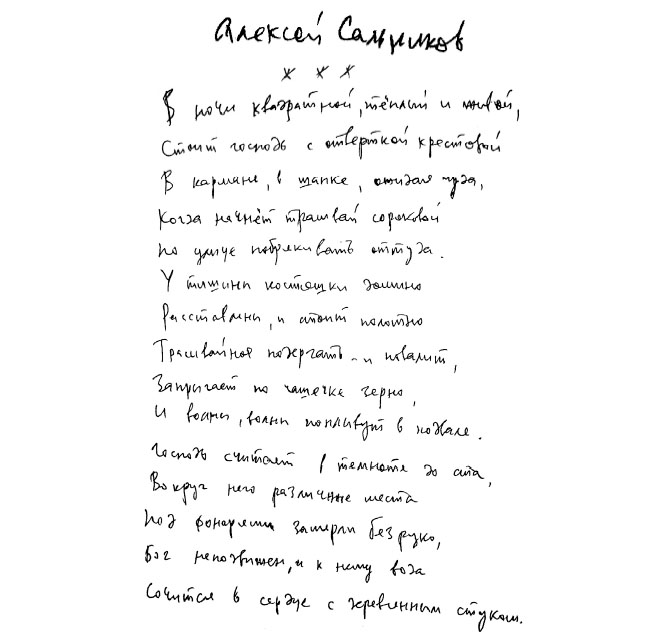 Алексей Сальников
* * *
В ночи квадратной, тёплый и живой,
Стоит господь с отвёрткой крестовой
В кармане, в шапке, ожидая чуда,
Когда начнёт трамвай сороковой
По улице побрякивать оттуда.
У тишины костяшки домино
Расставлены, и стоит полотно
Трамвайное подёргать - и повалит,
Запрыгает по чашечке зерно,
И волны, волны поплывут в подвале.
Господь считает в темноте до ста,
Вокруг него различные места
Под фонарями замерли безруко,
Бог неподвижен, и к нему вода
Сочится в сердце с деревянным стуком.